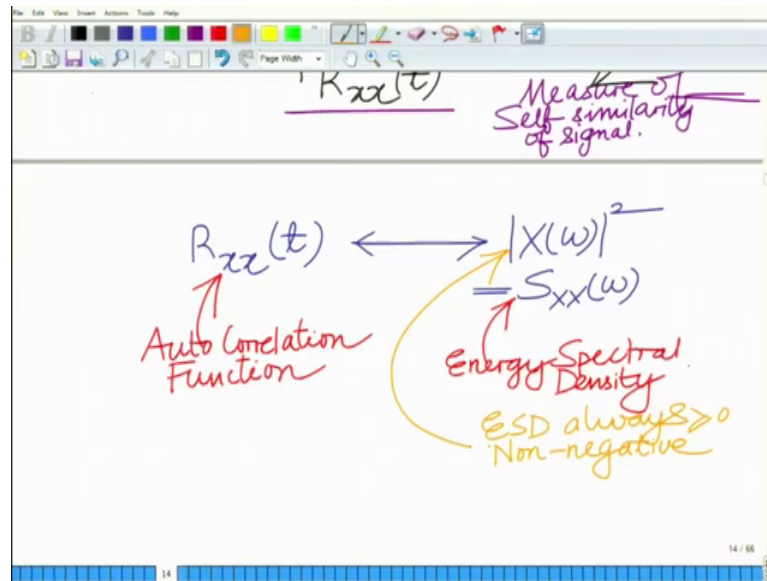 File Edit View Insert Actions Tools Help
B I
Page Width
R_xx(t)
Measure of
Self-similarity
of signal.
R_xx(t) ⟷ |X(ω)|²
= S_XX(ω)
Auto Correlation
Function
Energy Spectral
Density
ESD always ≥ 0
Non-negative
14 / 66
14